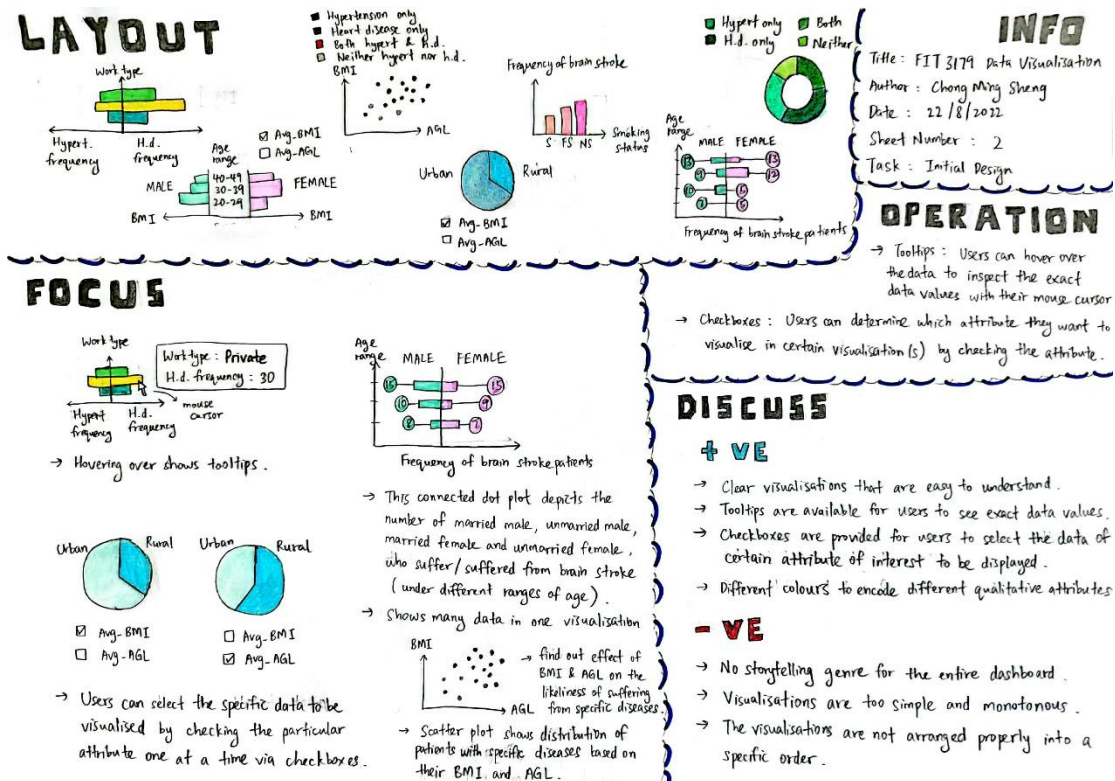 LAYOUT
Work type
Hypert.
frequency
H.d.
frequency
Avg-BMI
Avg-AGL
Age
range
MALE
40-49
30-39
20-29
FEMALE
BMI
BMI
Hypertension only
Heart disease only
Both hypert & h.d.
Neither hypert nor h.d.
BMI
AGL
Frequency of brain stroke
S FS NS
Smoking
status
Urban
Rural
Avg-BMI
Avg-AGL
Hypert only
H.d. only
Both
Neither
Age
range
MALE FEMALE
13 13
9 12
10 15
7 5
Frequency of brain stroke patients
INFO
Title : FIT 3179 Data Visualisation
Author : Chong Ming Sheng
Date : 22/8/2022
Sheet Number : 2
Task : Initial Design
OPERATION
→ Tooltips : Users can hover over
the data to inspect the exact
data values with their mouse cursor
→ Checkboxes : Users can determine which attribute they want to
visualise in certain visualisation(s) by checking the attribute.
FOCUS
Work type
Work type : Private
H.d. frequency : 30
mouse
cursor
Hypert
frequency
H.d.
frequency
→ Hovering over shows tooltips.
Urban
Rural
Avg-BMI
Avg-AGL
Urban
Rural
Avg-BMI
Avg-AGL
→ Users can select the specific data to be
visualised by checking the particular
attribute one at a time via checkboxes.
Age
range
MALE FEMALE
15 15
10 9
8 7
Frequency of brain stroke patients
→ This connected dot plot depicts the
number of married male, unmarried male,
married female and unmarried female,
who suffer/suffered from brain stroke
(under different ranges of age).
→ Shows many data in one visualisation
BMI
AGL
→ find out effect of
BMI & AGL on the
likeliness of suffering
from specific diseases.
→ Scatter plot shows distribution of
patients with specific diseases based on
their BMI and AGL.
DISCUSS
+ VE
→ Clear visualisations that are easy to understand.
→ Tooltips are available for users to see exact data values.
→ Checkboxes are provided for users to select the data of
certain attribute of interest to be displayed.
→ Different colours to encode different qualitative attributes
- VE
→ No storytelling genre for the entire dashboard.
→ Visualisations are too simple and monotonous.
→ The visualisations are not arranged properly into a
specific order.